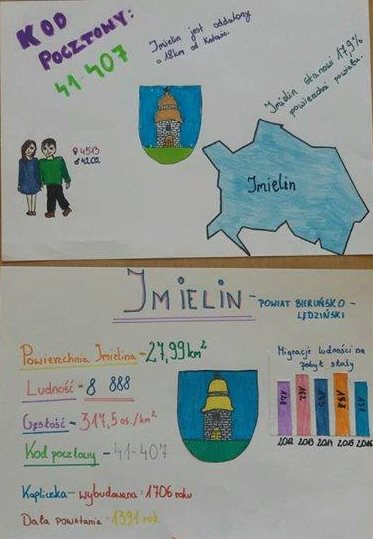 KOD
POCZTOWY:
41 407
Imielin jest oddalony
o 18km od Katowic.
Imielin stanowi 17,9%
powierzchni powiatu.
♀4513
♂4202
Imielin
IMIELIN - POWIAT BIERUŃSKO -
LĘDZIŃSKI
Powierzchnia Imielina - 27,99 km²
Ludność - 8 888
Gęstość - 317,5 os./km²
Kod pocztowy - 41-407
Kapliczka - wybudowana: 1706 roku
Data powstania - 1391 rok
Migracje ludności na
pobyt stały
2012 2013 2014 2015 2016